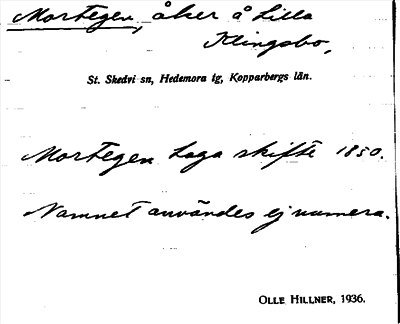 Mortegen, åker å Lilla
Klingsbo,
St. Skedvi sn, Hedemora tg, Kopparbergs län.
Mortegen Laga skifte 1850.
Namnet användes ej numera.
OLLE HILLNER, 1936.